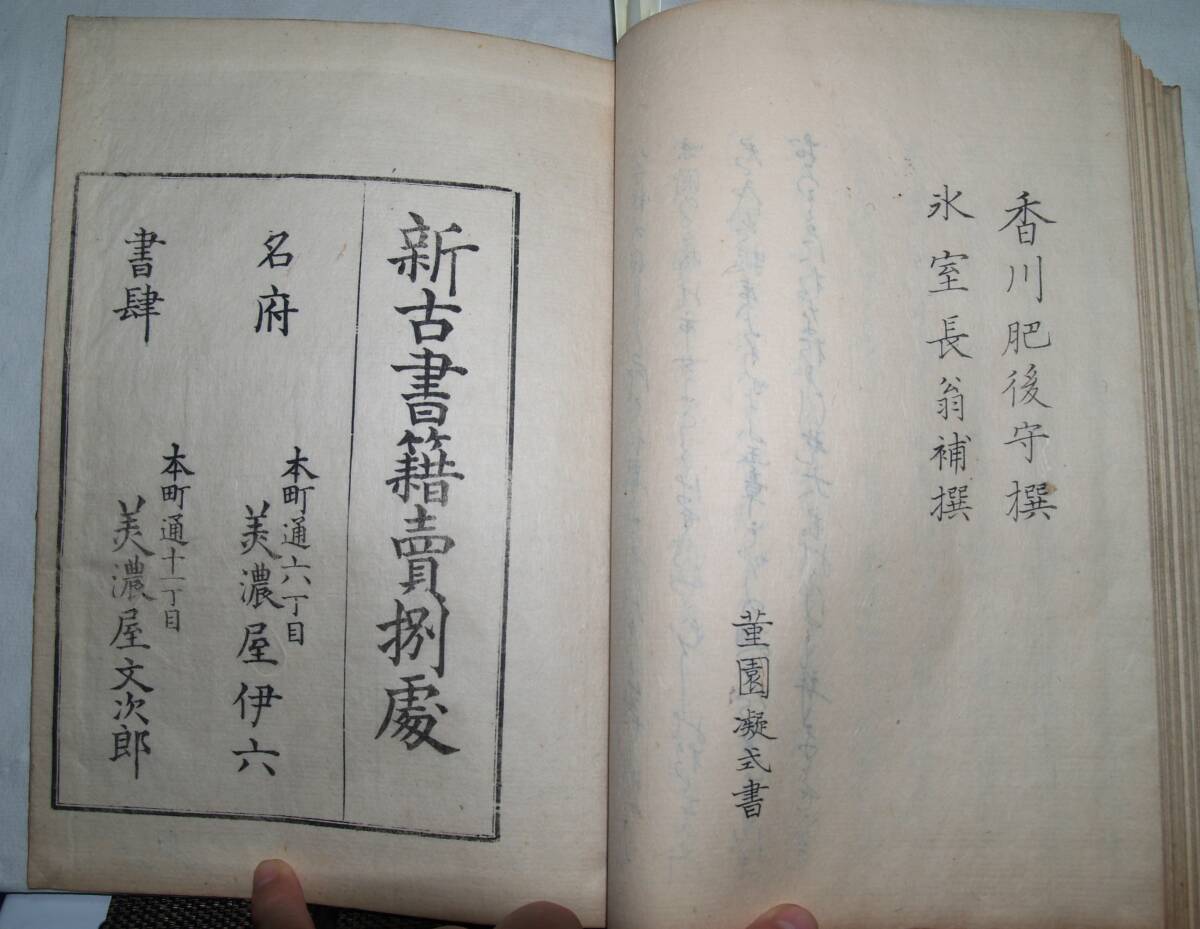 香川肥後守撰
氷室長翁補撰
菫園凝式書
新古書籍賣捌處
名府
本町通六丁目
美濃屋伊六
書肆
本町通十一丁目
美濃屋文次郎